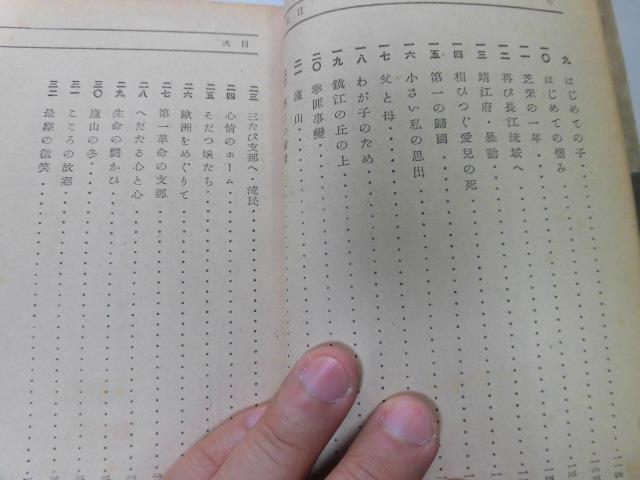 九 はじめての子
一〇 はじめての惱み
一一 芝罘の一年
一二 再び長江流域へ
一三 靖江府・暴動
一四 相ひつぐ愛兒の死
一五 第一の歸國
一六 小さい私の思出
一七 父と母
一八 わが子のため
一九 鎭江の丘の上
二〇 拳匪事變
二一 廬山
目次
二三 三たび支那へ 流民
二四 心情のホーム
二五 そだつ娘たち
二六 歐洲をめぐりて
二七 第一革命の支那
二八 へだたる心と心
二九 生命の鬪かひ
三〇 廬山の冬
三一 こころの故鄕
三二 最期の微笑